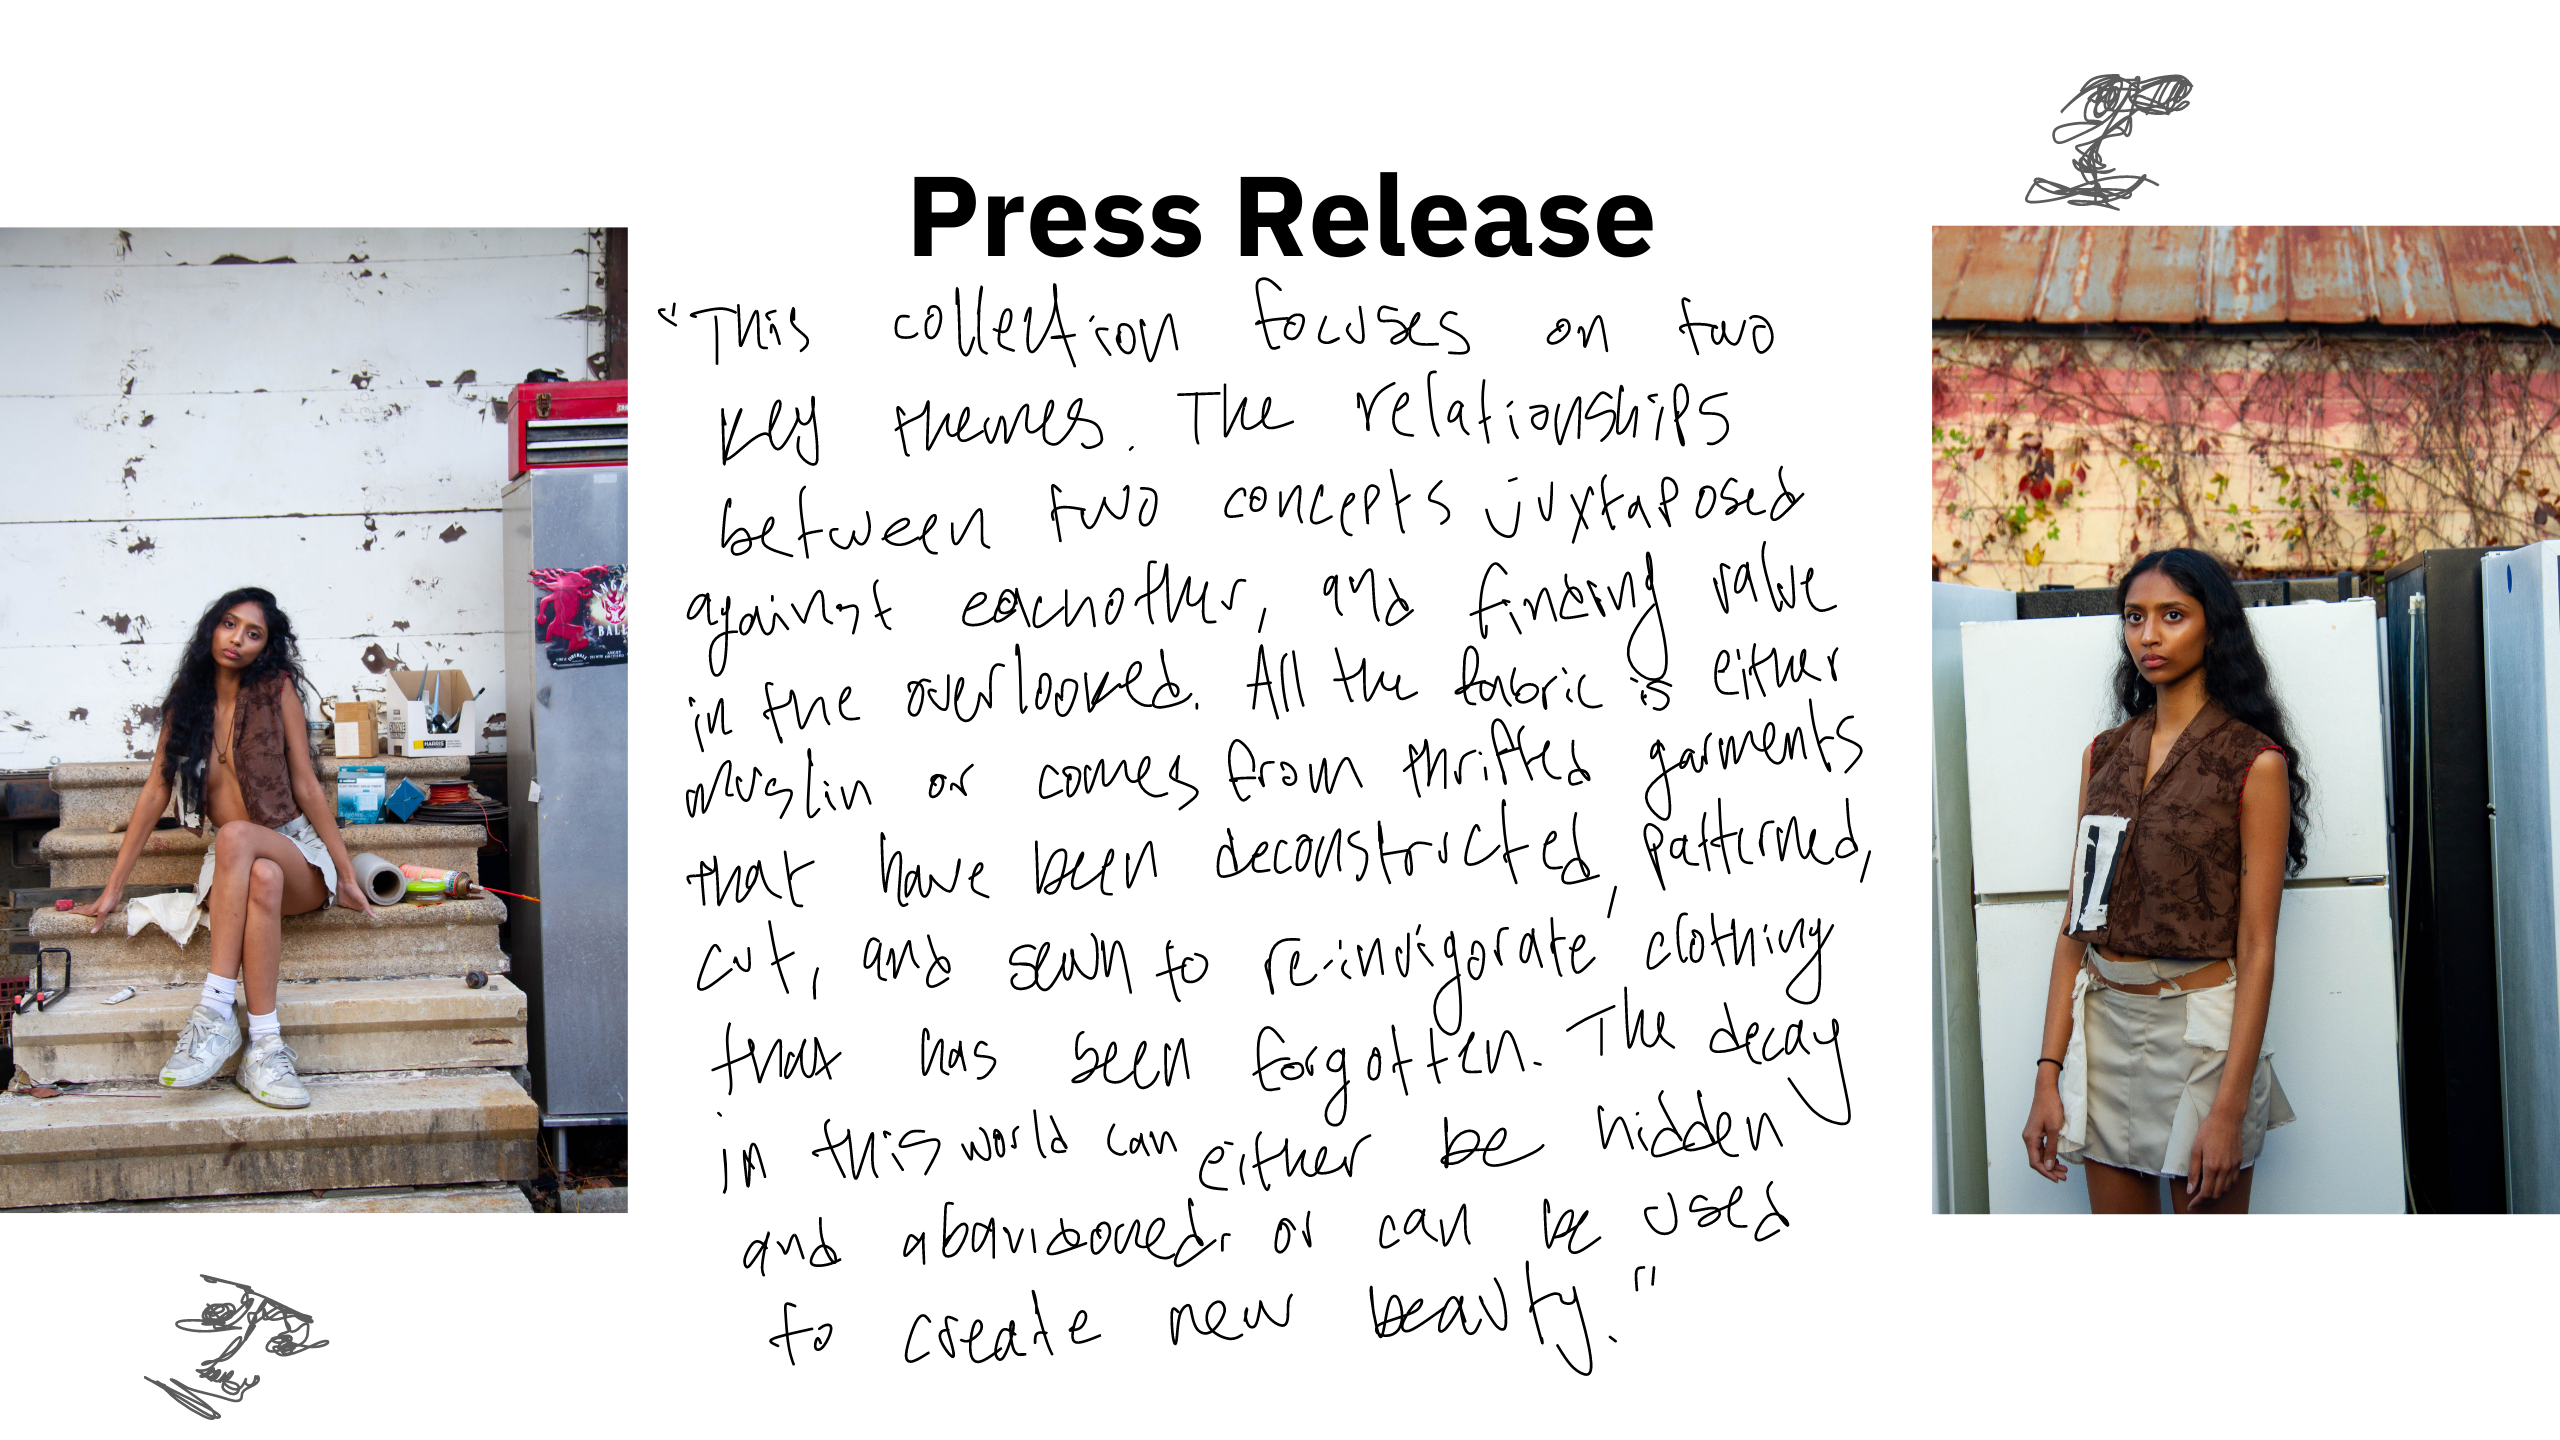 Press Release
"This collection focuses on two
key themes. The relationships
between two concepts juxtaposed
against eachother, and finding value
in the overlooked. All the fabric is either
muslin or comes from thrifted garments
that have been deconstructed, patterned,
cut, and sewn to re-invigorate clothing
that has been forgotten. The decay
in this world can either be hidden
and abandoned, or can be used
to create new beauty."
BALL
HARRIS